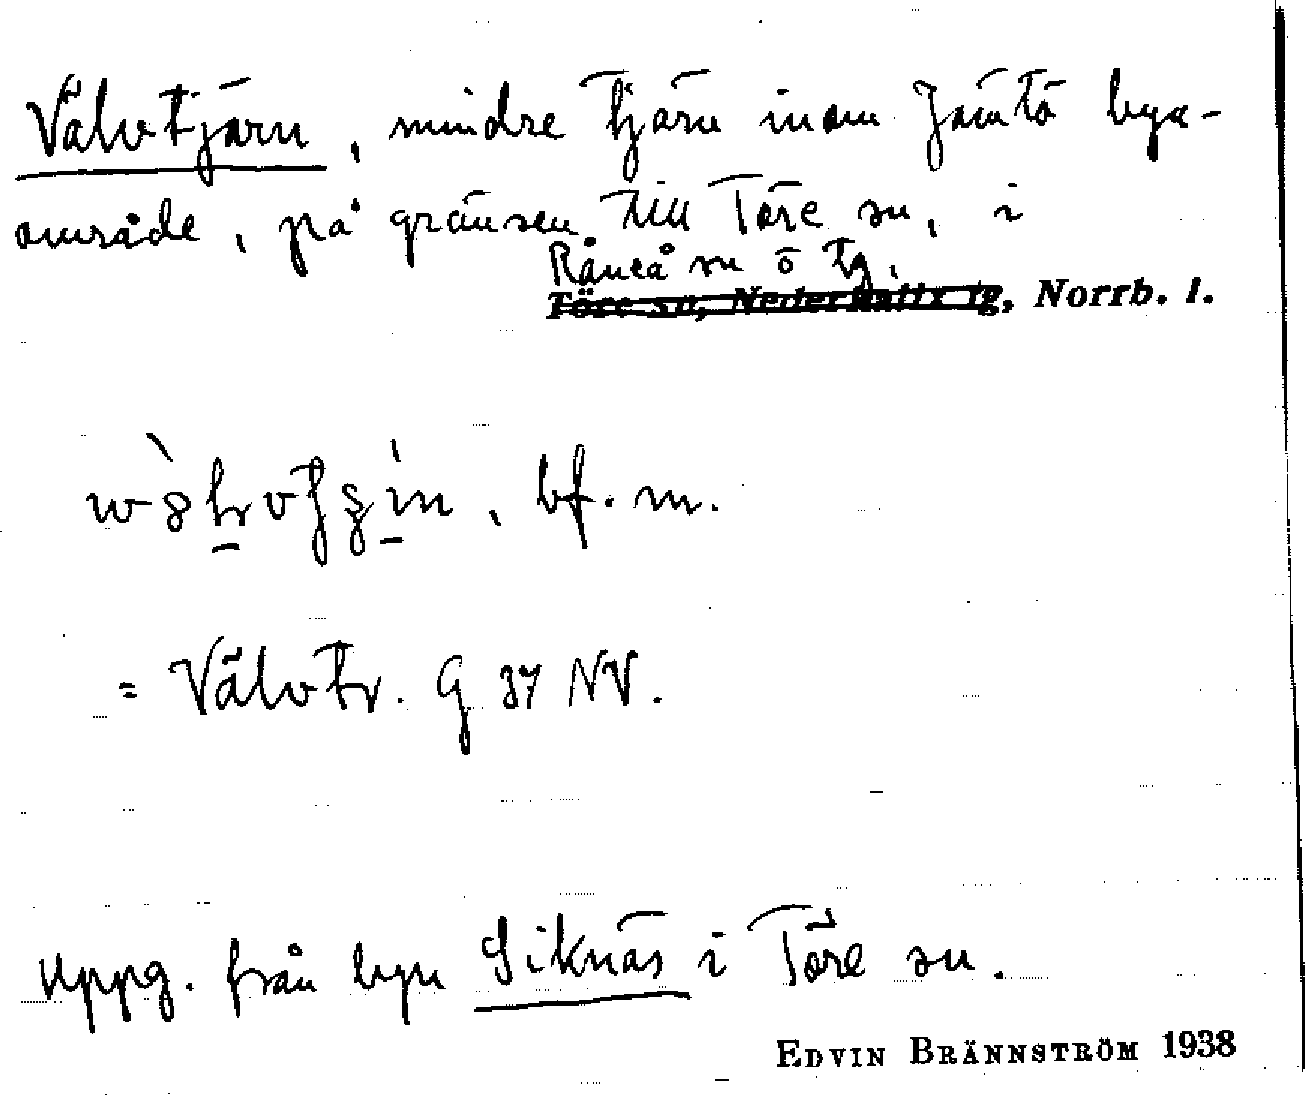 Välvtjärn, mindre tjärn inom Jämtö bya-
område, på gränsen till Töre sn, i
Råneå sn o tg.
Töre sn, Nederkalix tg, Norrb. l.
bf. m.
= Välvtr. G 37 NV.
Uppg. från byn Siknäs i Töre sn.
EDVIN BRÄNNSTRÖM 1938